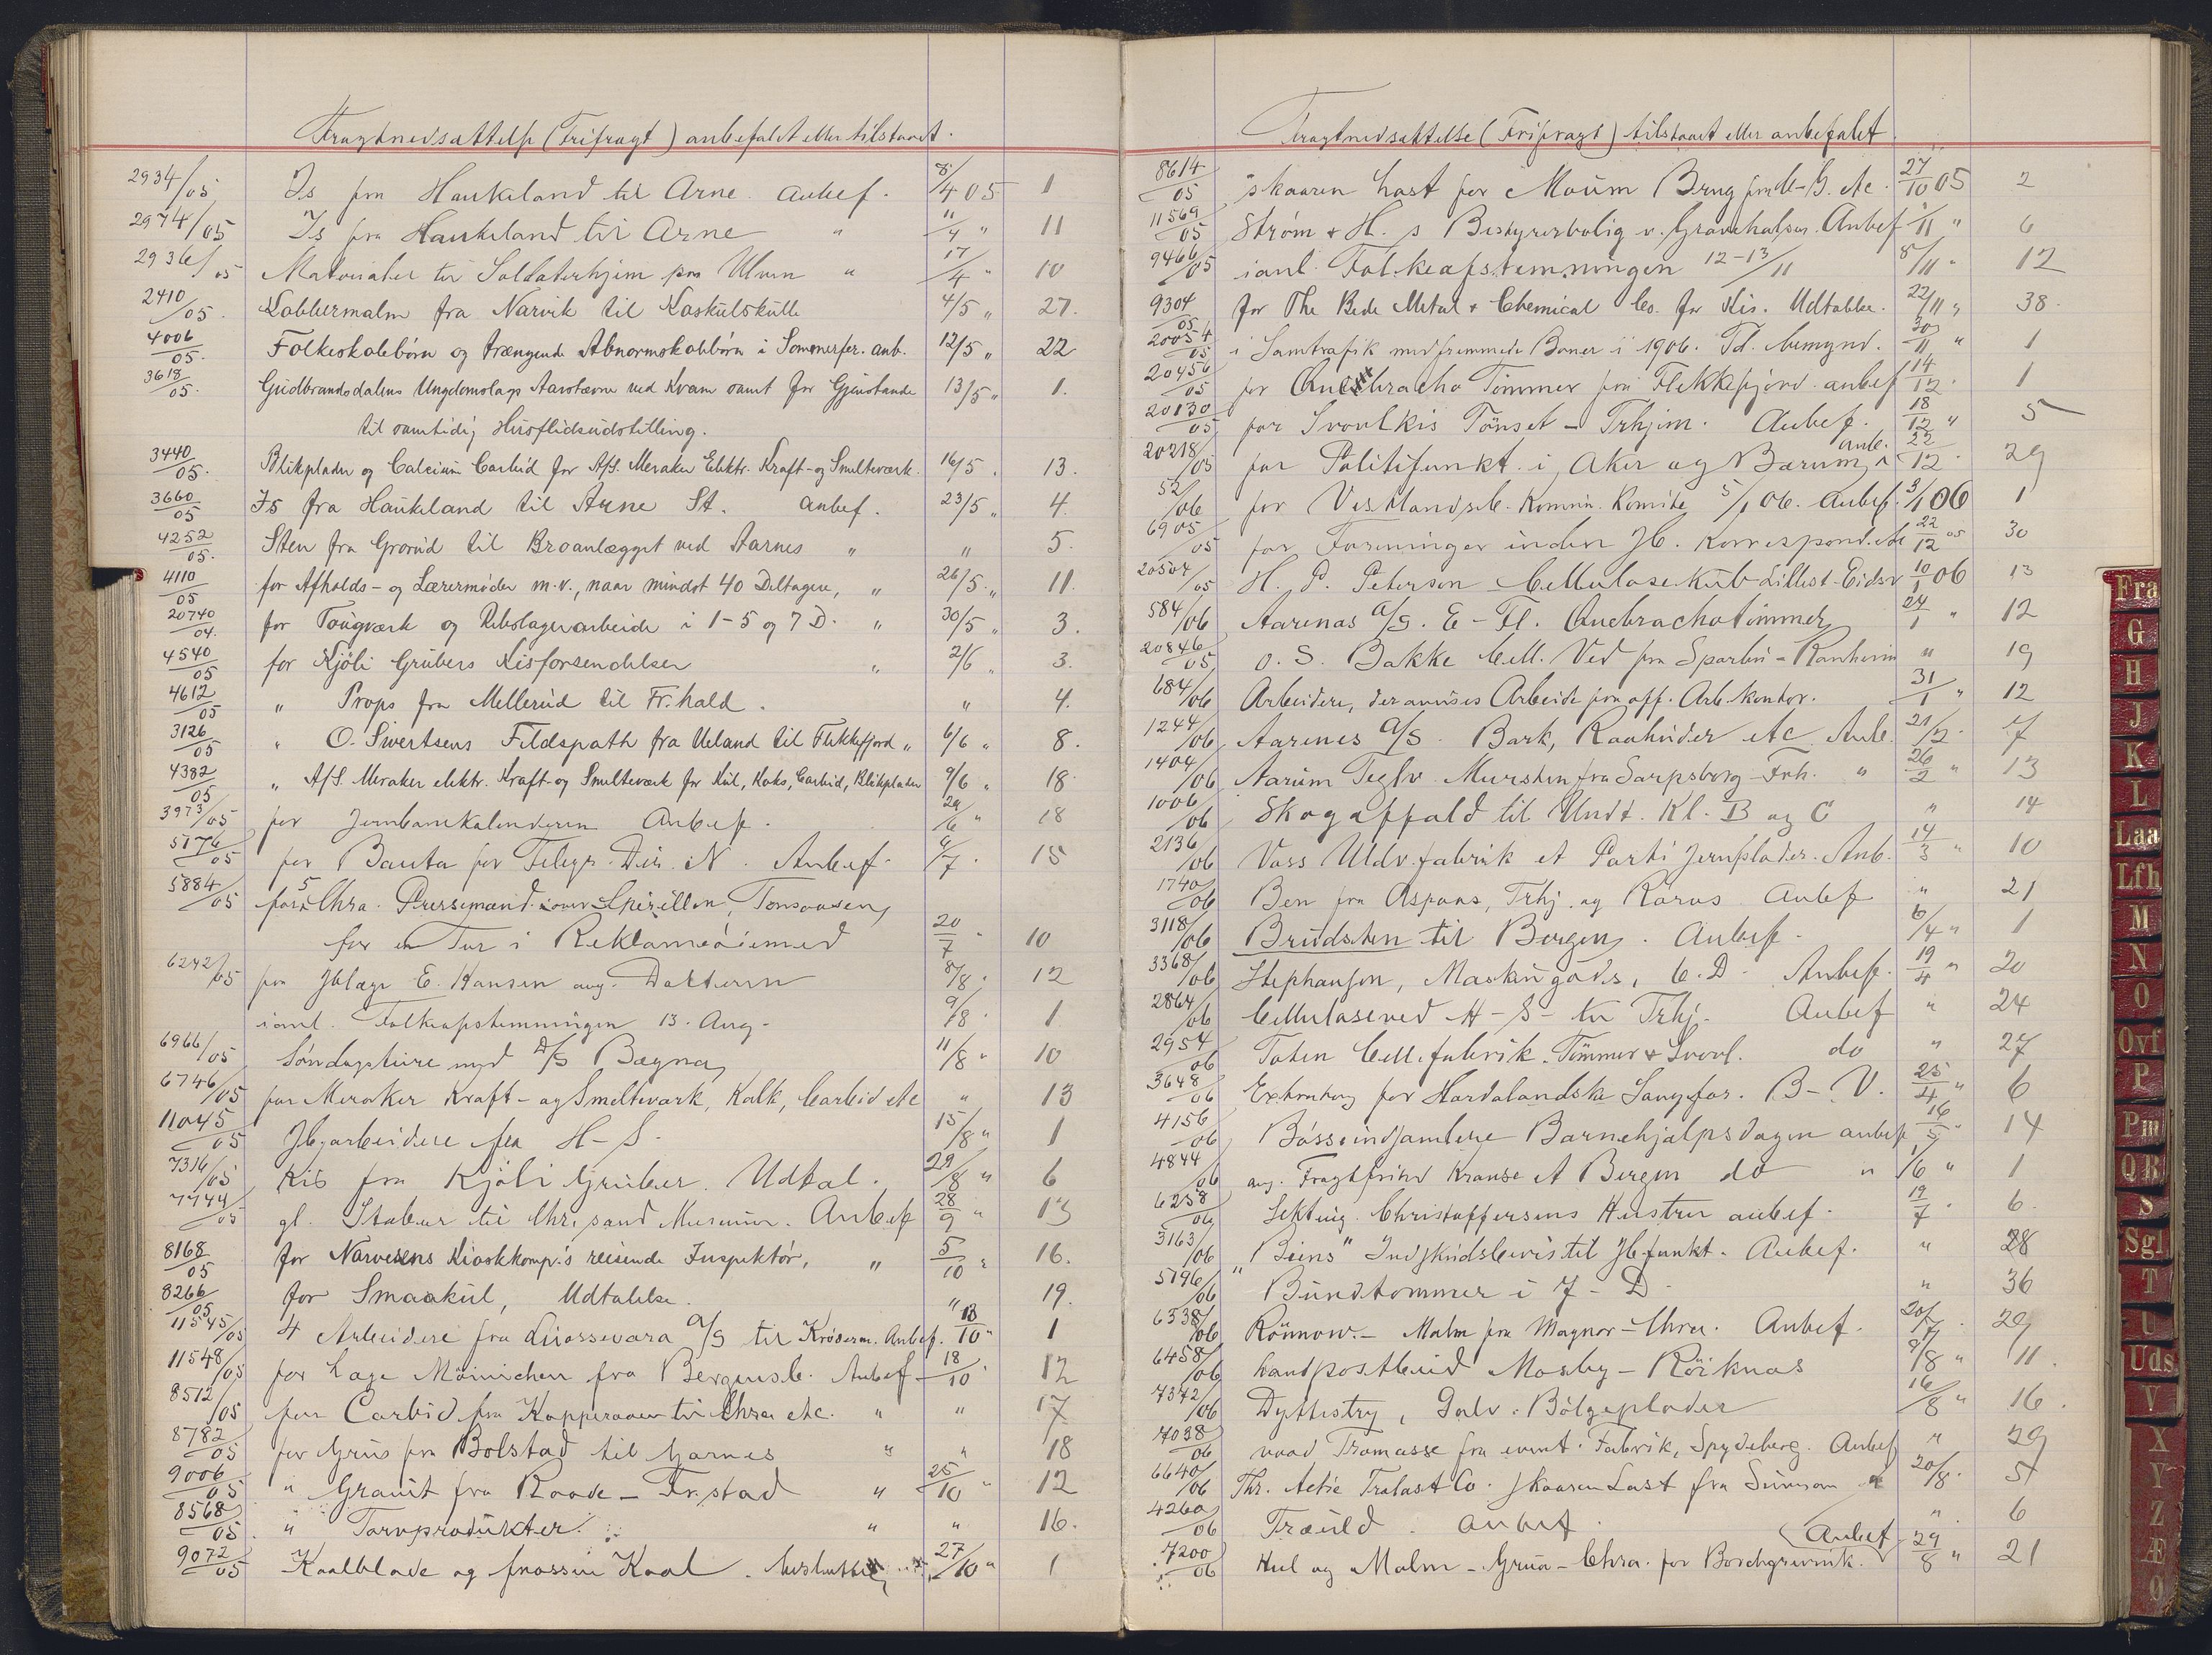 Fragtnedsættelse (Frifragt) anbefalet eller tilstaaet.
2934/05 Is fra Haukeland til Arne. Anbef. 8/4 05 1
2974/05 Is fra Haukeland til Arne " 11/4 " 11
2936/05 Materialer til Soldaterhjem paa Ulven " 17/4 " 10
2410/05. Kobbermalm fra Narvik til Koskulskulle 4/5 " 27.
4006/05. Folkeskolebörn og trængende Abnormskolebörn i Sommerfer. anb. 12/5 " 22
3618/05. Gudbrandsdalens Ungdomslags Aarsstævne ved Kvam samt for Gjenstande 13/5 " 1.
til samtidig Husflidsudstilling.
3440/05. Blikplader og Calcium Carbid for A/S. Meraker Elektr. Kraft- og Smelteværk. 16/5 . 13.
3660/05 Is fra Haukeland til Arne St. anbef. 23/5 " 4.
4252/05. Sten fra Grorud til Broanlægget ved Aarnes " " 5.
4110/05 for Afholds- og Lærermöder m.v., naar mindst 40 Deltagere, " 26/5 " 11.
20740/04. for Tougværk og Rebslagerarbeide i 1-5 og 7 D. " 30/5 " 3.
4540/05 for Kjöli Grubers Kisforsendelser " 2/6 " 3.
4612/05 " Props fra Mellerud til Fr.hald. " 4.
3126/05 " O. Sivertsens Feldspath fra Ueland til Flekkefjord " 6/6 " 8.
4382/05 " A/S. Meraker elektr. Kraft- og Smelteværk for Kul, Koks, Carbid, Blikplader 9/6 " 18
3973/05 for Jernbanekalenderen Anbef. 29/6 " 18
5176/05 for Bauta for Telegr. Dir. N. Anbef. 6/7 . 15
5884/05 for 5 Chra. Pressemænd over Spirillen, Tonsaasen,
for en Tur i Reklameöiemed 20/7 " 10
6242/05 fra Jblæge E. Hansen ang. Datteren 8/8 . 12
i anl. Folkeafstemningen 13. Aug. 9/8 . 1
6966/05 Söndagsture med D/S Bægna, 11/8 " 10
6746/05 for Meraker Kraft- og Smelteværk, Kalk, Carbid etc " 13
11045/05 Jbarbeidere fra H-S. 15/8 " 1
7316/05 Kis fra Kjöli Gruber. Udtal. 29/8 " 6
7744/05 gl. Stabur til Chr.sand Museum. Anbef 28/9 " 13
8168/05 for Narvesens Kioskkomp.'s reisende Inspektör, " 5/10 " 16.
8266/05 for Smaakul, Udtalelse. " 19.
11545/05 4 Arbeidere fra Luossavara A/S til Kröderen. Anbef. 18/10 " 1
11548/05 for Læge Möinichen fra Bergensb. Anbef 18/10 . 12
8512/05 for Carbid fra Kopperaaen til Chra etc. " " 17
8782/05 for Grus fra Bolstad til Garnes " " 18
9006/05 " Granit fra Raade - Fr.stad " 25/10 " 12
8568/05 " Torvprodukter. " " 16.
9072/05 Kaalblade og frossen Kaal. 27/10 " 1
Fragtnedsættelse (Frifragt) tilstaaet eller anbefalet.
8614/05 skaaren Last for Moum Brug fra H-G. etc. 27/10 05 2
11569/05 Strøm & H.s Bestyrerbolig v. Gravehalsen. Anbef /11 " 6
9466/05 i anl. Folkeafstemningen 12-13/11 8/11 " 12
9304/05 for The Bede Metal & Chemical Co. for Kis. Udtalelse. 22/11 " 38.
20054/05 i Samtrafik med fremmede Baner i 1906. 30/11 " 1
20456/05 for Quebracho Tömmer fra Flekkefjord. anbef 14/12 . 1
20130/05 for Svovlkis Tönset - Trhjem. Anbef. 18/12 " 5
20218/05 for Politifunkt. i Aker og Bærum, anb. 22/12 . 29
52/06 for Vestlandsb. Komm. Komite 5/1 06. Anbef. 3/1 06 1
6905/05 for Foreninger inden Jb. Korrespond. etc 22/12 05 30
20504/05 H. P. Peterson - Cellulosekub Lillest.-Eidsv 10/1 06 13
584/06 Aarenas A/S. E - Fl. Quebrachotimmer 24/1 " 12
20846/05 O. S. Bakke Cell. Ved fra Sparbu - Ranheim " 19
684/06 Arbeidere, der anvises Arbeide fra off. Arb.kontor. 31/1 " 12
1244/06 Aarenes A/S. Bark, Raahuder etc Anb. 21/2 . 7
1404/06 Aarum Teglv. Mursten fra Sarpsborg - Frh. " 26/2 " 13
1006/06 Skogaffald til Undt. Kl. B og C " 14
2136/06 Voss Uldv.fabrik et Parti Jernplader. Anb. 14/3 " 10
1740/06 Ben fra Aspaas, Trhj. og Röros Anbef " 21
3118/06 Brudsten til Bergen. Anbef. 6/4 " 1
3368/06 Stephanson, Maskingods, C. D. Anbef. 19/4 " 20
2864/06 Celluloseved H-S- til Trhj. Anbef " 24
2954/06 Toten Cell.fabrik. Tömmer & Svovl. do " 27
3648/06 Extratog for Hordalandske Sangfor. B - V. 25/4 " 6
4156/06 Bösseindsamlere Barnehjælpsdagen anbef 16/5 " 14
4844/06 ang. Fragtfrihed Kranse et Bergen do " 1/6 " 1
6258/06 Sekting. Christoffersens Hustru anbef. 19/7 . 6.
3163/06 "Beins" Indskudsbevis til Jb.funkt. Anbef. " 28
5196/06 Bundtommer i 7 - D. " 36
6538/06 Rönnow. - Malm fra Magnor - Chra. Anbef. 20/7 . 29
6458/06 Landpostbud Mosby - Röiknas 8/8 " 11.
7372/06 Dyttestry, Galv. Bölgeplader 16/8 " 16.
7038/06 vaad Tramasse fra event. Fabrik, Spydeberg. Anbef " 29
6640/06 Thr. Actie Trælast Co. skaaren Last fra Sunnan " 20/8 . 5
4260/06 Træuld. anbef. " 6
7200/06 Hul og Malm - Grua - Chra. for Borchgrevink. Anbef 29/8 " 21
Fra
G
H
J
K
L
Laa
Lfh
M
N
O
Ovf
P
Pm
QR
S
Sgl
T
U
Uds
V
X
Y
Z
Æ
Ø